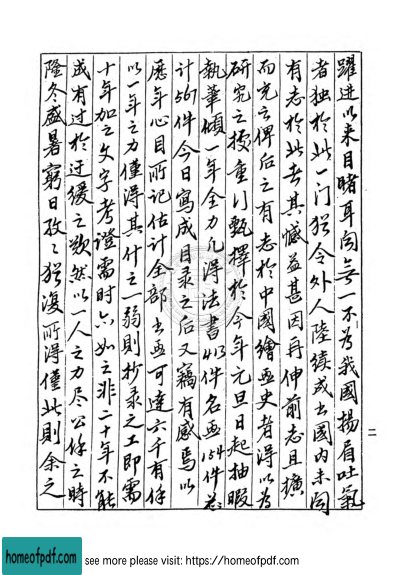 躍進以來目睹耳闻無一不为我國揚眉吐氣
者独於此一门犹令外人陸續成书國内未闻
有志於此者其憾益甚因再伸前志且擴
而充之俾后之有志於中國繪画史者得以为
研究之據重行甄擇於今年元旦日起抽暇
執筆傾一年全力凡得法書413件名画154件
计567件今日寫成目录之后又竊有感焉以
歷年心目所记估计全部书画可達六千有余
以一年之力僅得其什之一弱則抄录之工即需
十年加之文字考證需时亦如之非二十年不能
成有过於迂缓之歎然以一人之力尽公余之時
隆冬盛暑窮日孜々犹復所得僅此則余之
二
homeofpdf.com
see more please visit: https://homeofpdf.com